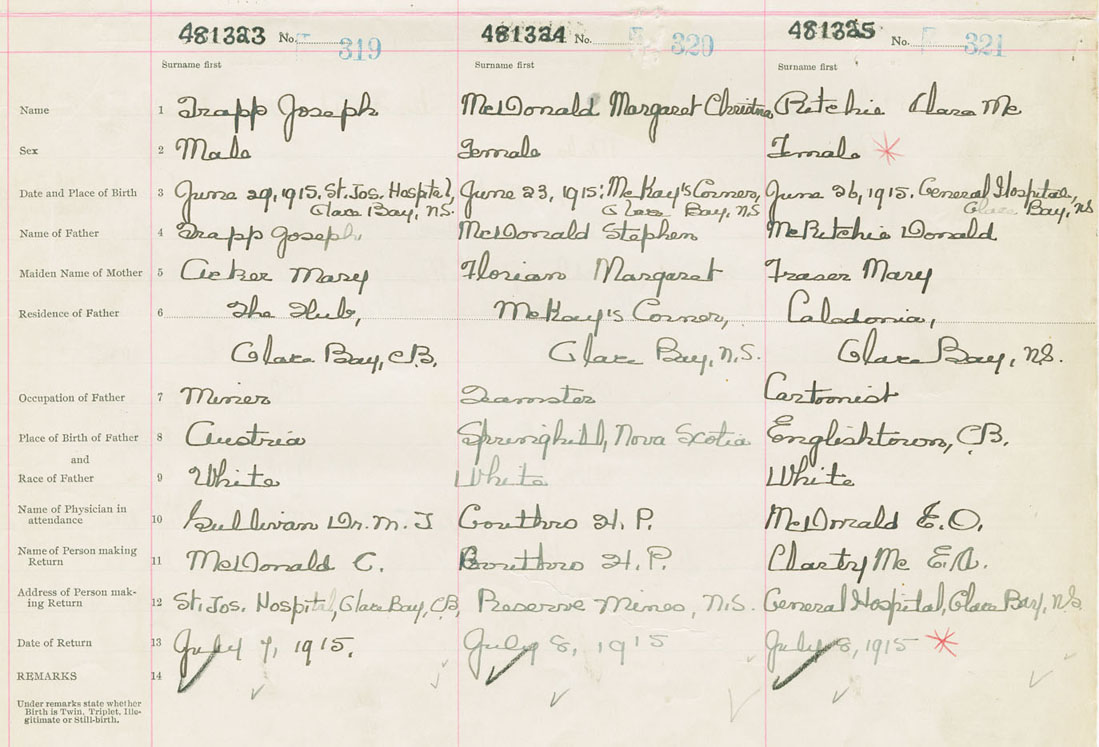 481323 No. 319 481324 No. 320 481325 No. 321
Surname first Surname first Surname first
Name 1 Trapp Joseph McDonald Margaret Christina Ritchie Clara Mc
Sex 2 Male Female Female
Date and Place of Birth 3 June 29, 1915. St. Jos. Hospital, June 23, 1915: McKay's Corner, June 26, 1915. General Hospital,
Glace Bay, N.S. Glace Bay, N.S Glace Bay, N.S
Name of Father 4 Trapp Joseph McDonald Stephen McRitchie Donald
Maiden Name of Mother 5 Acker Mary Florian Margaret Fraser Mary
Residence of Father 6 The Hub, McKay's Corner, Caledonia,
Glace Bay, C.B. Glace Bay, N.S. Glace Bay, N.S.
Occupation of Father 7 Miner Teamster Cartoonist
Place of Birth of Father 8 Austria Springhill, Nova Scotia Englishtown, C.B.
and
Race of Father 9 White White White
Name of Physician in
attendance 10 Sullivan Dr. M. J Gouthro H. P. McDonald E. O.
Name of Person making
Return 11 McDonald C. Gouthro H. P. Mc E.A.
Address of Person mak-
ing Return 12 St. Jos. Hospital, Glace Bay, C.B, Reserve Mines, N.S. General Hospital, Glace Bay, N.S.
Date of Return 13 July 7, 1915. July 8, 1915 July 8, 1915
REMARKS 14
Under remarks state whether
Birth is Twin, Triplet, Ille-
gitimate or Still-birth.